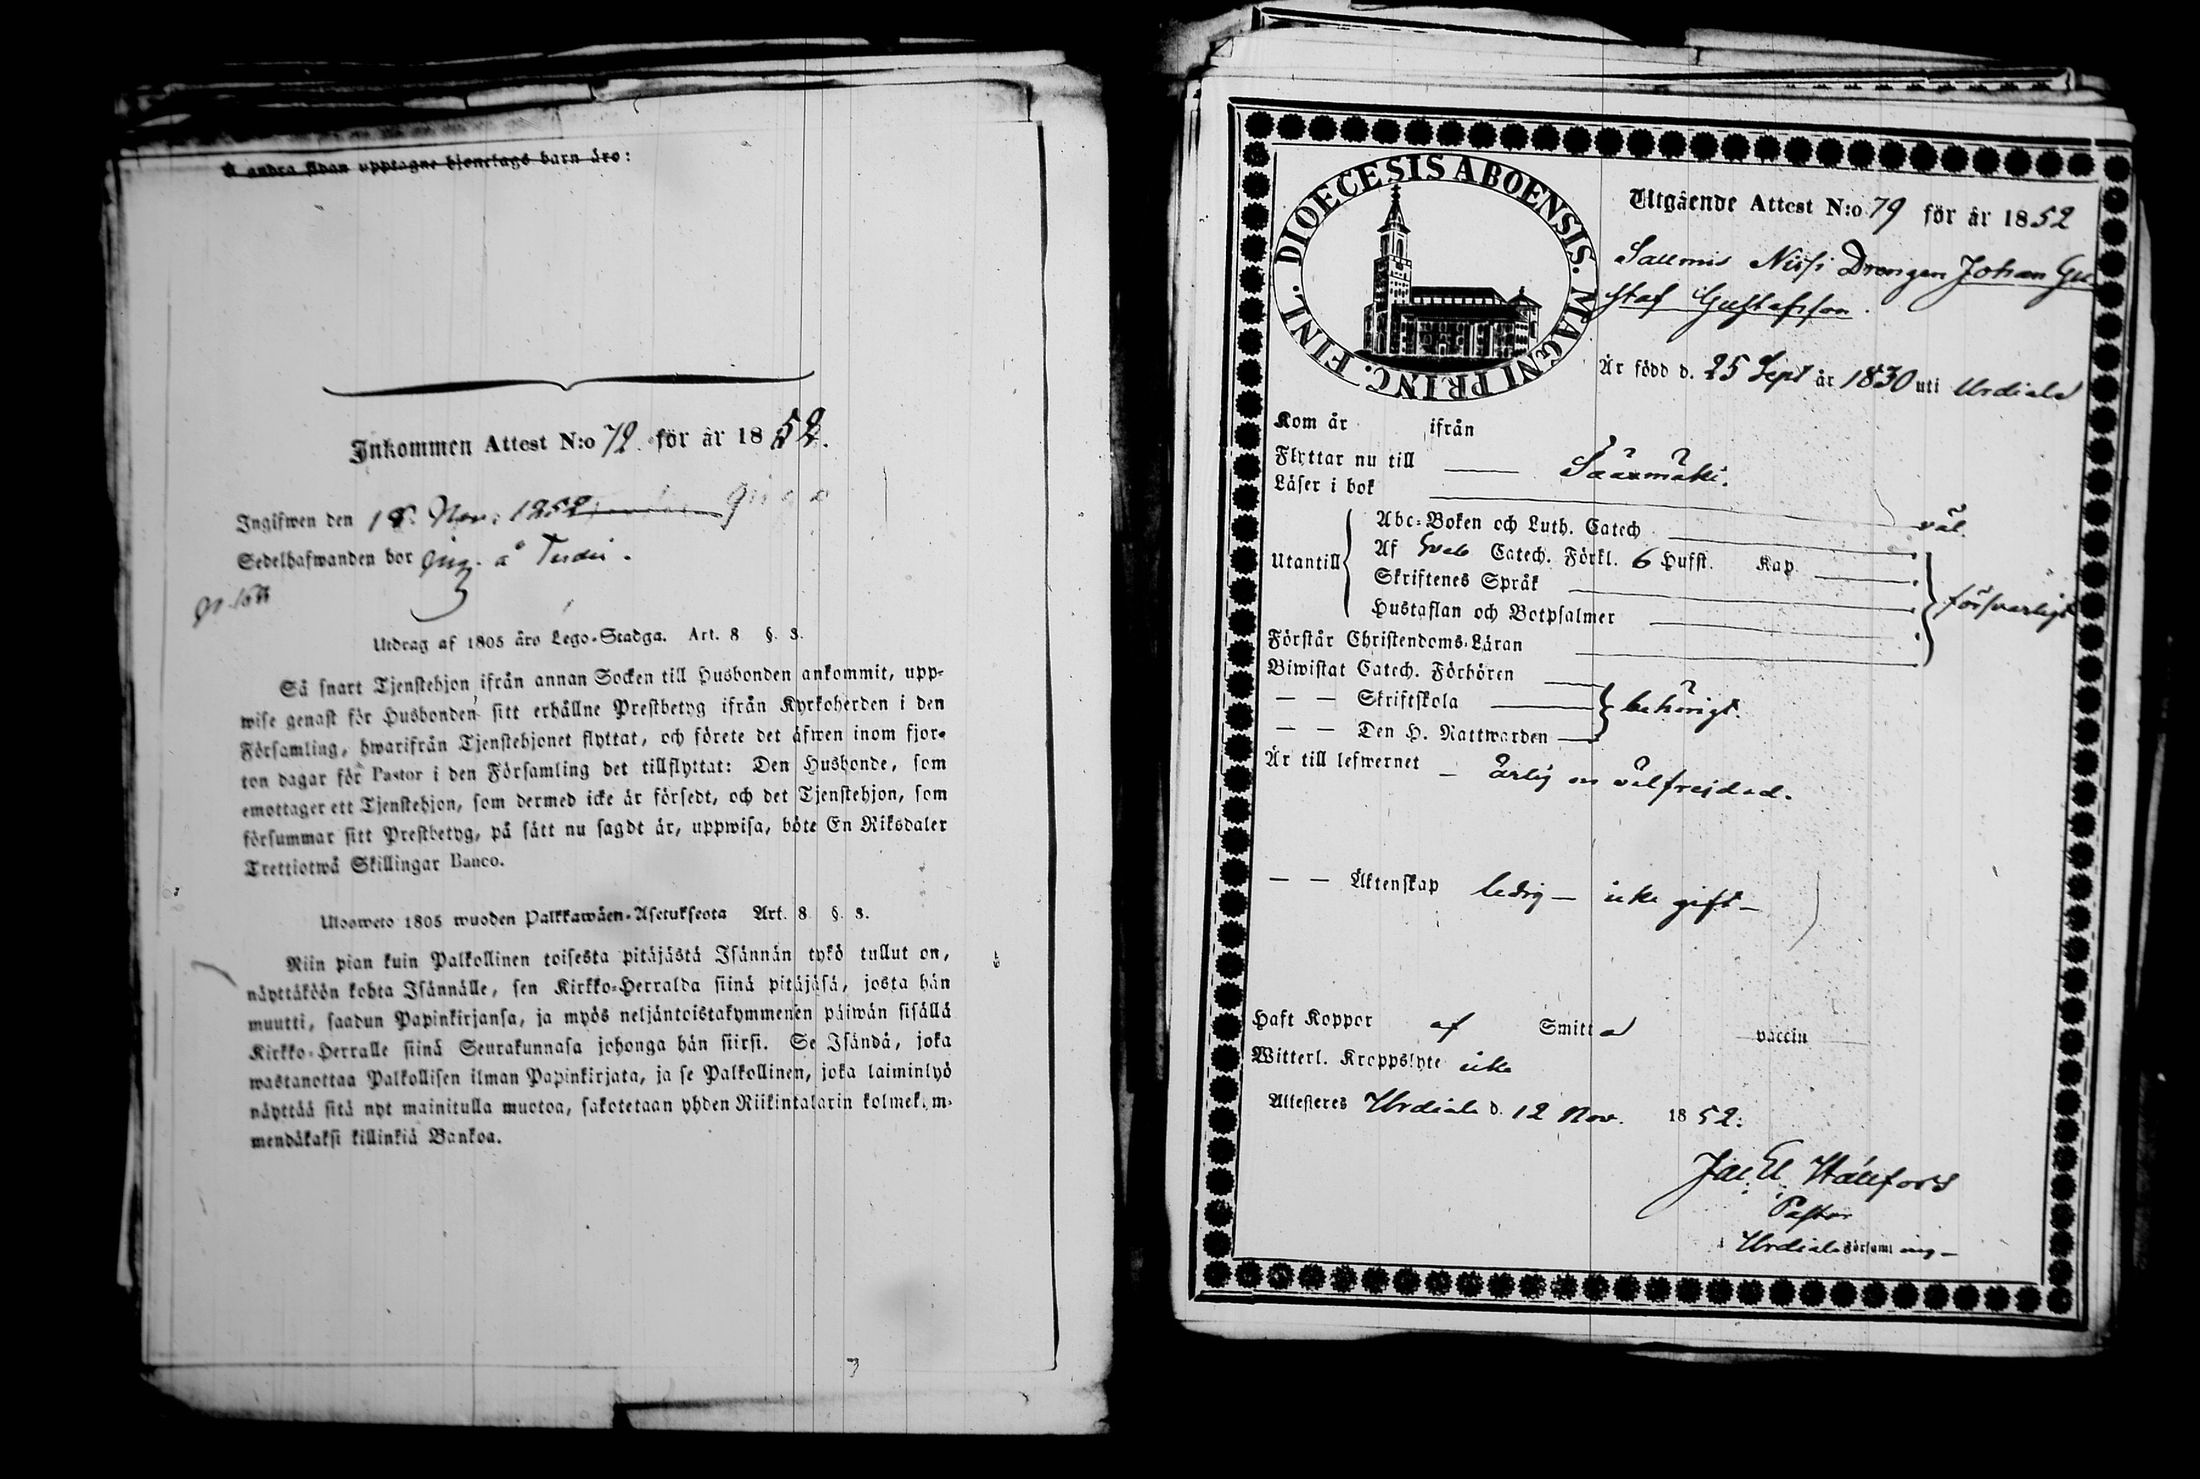 Å andra sidan upptagne hjonelags barn äro:
Inkommen Attest N:o 72 för år 1852.
Ingifwen den 18. Nov. 1852
Sedelhafwanden bor på
Utdrag af 1805 års Lego-Stadga. Art. 8 §. 3.
Så snart Tjenstehjon ifrån annan Socken till Husbonden ankommit, upp-
wise genast för Husbonden sitt erhållne Prestbetyg ifrån Kyrkoherden i den
Församling, hwarifrån Tjenstehjonet flyttat, och förete det äfwen inom fjor-
ton dagar för Pastor i den Församling det tillflyttat: Den Husbonde, som
emottager ett Tjenstehjon, som dermed icke är försedt, och det Tjenstehjon, som
försummar sitt Prestbetyg, på sätt nu sagdt är, uppwisa, böte En Riksdaler
Trettiotwå Skillingar Banco.
Ulosweto 1805 wuoden Palkkawäen-Asetuksesta Art. 8 §. 3.
Niin pian kuin Palkollinen toisesta pitäjästä Isännän tykö tullut on,
näyttäköön kohta Isännälle, sen Kirkko-Herralda siinä pitäjäsä, josta hän
muutti, saadun Papinkirjansa, ja myös neljäntoistakymmenen päiwän sisällä
Kirkko-Herralle siinä Seurakunnasa johonga hän siirsi. Se Isändä, joka
wastanottaa Palkollisen ilman Papinkirjata, ja se Palkollinen, joka laiminlyö
näyttää sitä nyt mainitulla muotoa, sakotetaan yhden Riikintalarin kolmekym-
mendäkaksi killinkiä Bankoa.
DIOECESIS ABOENSIS. MAGNI PRINC. FINL.
Utgående Attest N:o 79 för år 1852
Drengen Johan Gu
staf Gustafsson.
Är född d. 25 Sept år 1830 uti Urdiala
Kom år ifrån
Flyttar nu till Sääxmäki.
Läser i bok väl.
Utantill
Abc-Boken och Luth. Catech
Af Sveb Catech. Förkl. 6 Hufst. Kap
Skriftenes Språk
Hustaflan och Botpsalmer
försvarligt
Förstår Christendoms-Läran
Biwistat Catech. Förhören
— — Skriftskola behörigt.
— — Den H. Nattwarden
Är till lefwernet ärlig och välfrejdad.
— — Äktenskap ledig — icke gift —
Haft Koppor af Smitta vaccin
Witterl. Kroppslyte icke
Attesteres Urdiala d. 12 Nov. 1852:
Pastor
i Urdiala Församling —